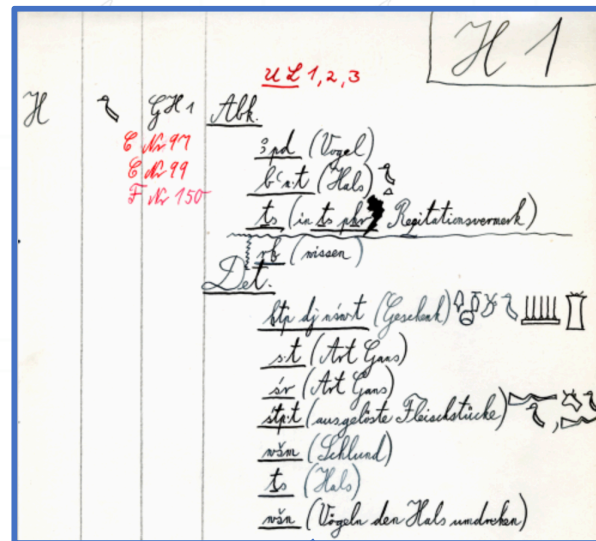 H 1
U L 1, 2, 3
H GH 1 Abk.
C Nr 97
E Nr 99
F Nr 150
ꜣpd (Vogel)
bꜥn:t (Hals)
ṯs (in ṯs pẖr Rezitationsvermerk)
rḫ (wissen)
Det.
ḥtp dj nśwt (Geschenk)
s:t (Art Gans)
śr (Art Gans)
śtp:t (ausgelöste Fleischstücke)
wšm (Schlund)
ṯs (Hals)
wšn (Vögeln den Hals umdrehen)